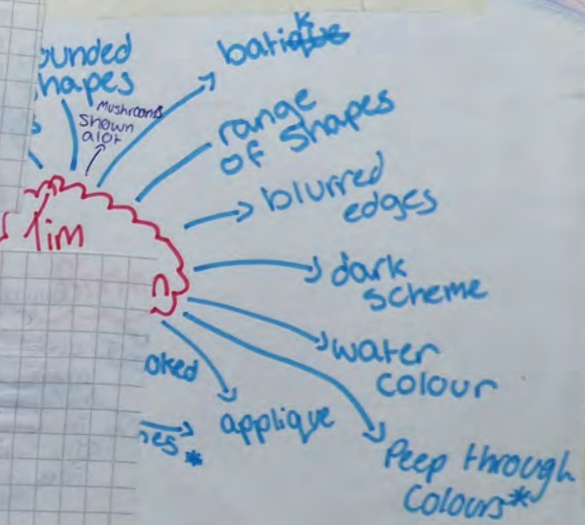 ounded
hapes
Mushrooms
shown
alot
batik
range
of shapes
blurred
edges
Tim
n
dark
scheme
water
colour
oked
applique
es*
Peep through
Colours*